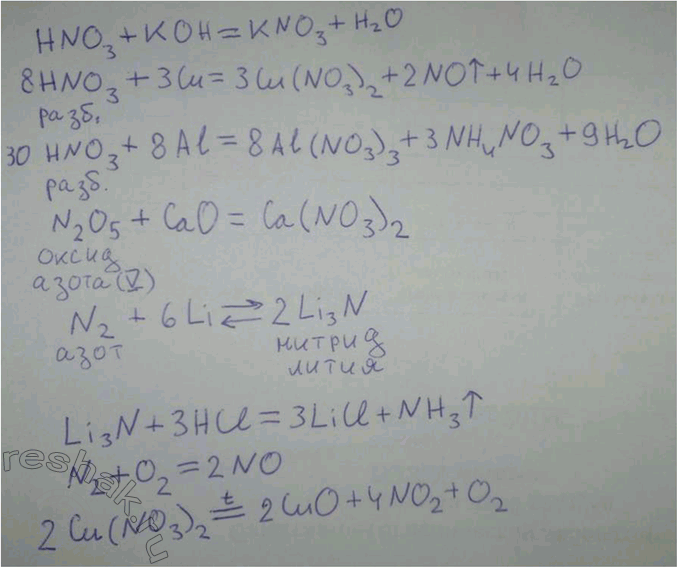 HNO₃ + KOH = KNO₃ + H₂O
8HNO₃ + 3Cu = 3Cu(NO₃)₂ + 2NO↑ + 4H₂O
разб.
30 HNO₃ + 8Al = 8Al(NO₃)₃ + 3NH₄NO₃ + 9H₂O
разб.
N₂O₅ + CaO = Ca(NO₃)₂
оксид
азота (V)
N₂ + 6Li ⇄ 2Li₃N
азот нитрид
лития
Li₃N + 3HCl = 3LiCl + NH₃↑
N₂ + O₂ = 2NO
t
2Cu(NO₃)₂ = 2CuO + 4NO₂ + O₂
reshak.